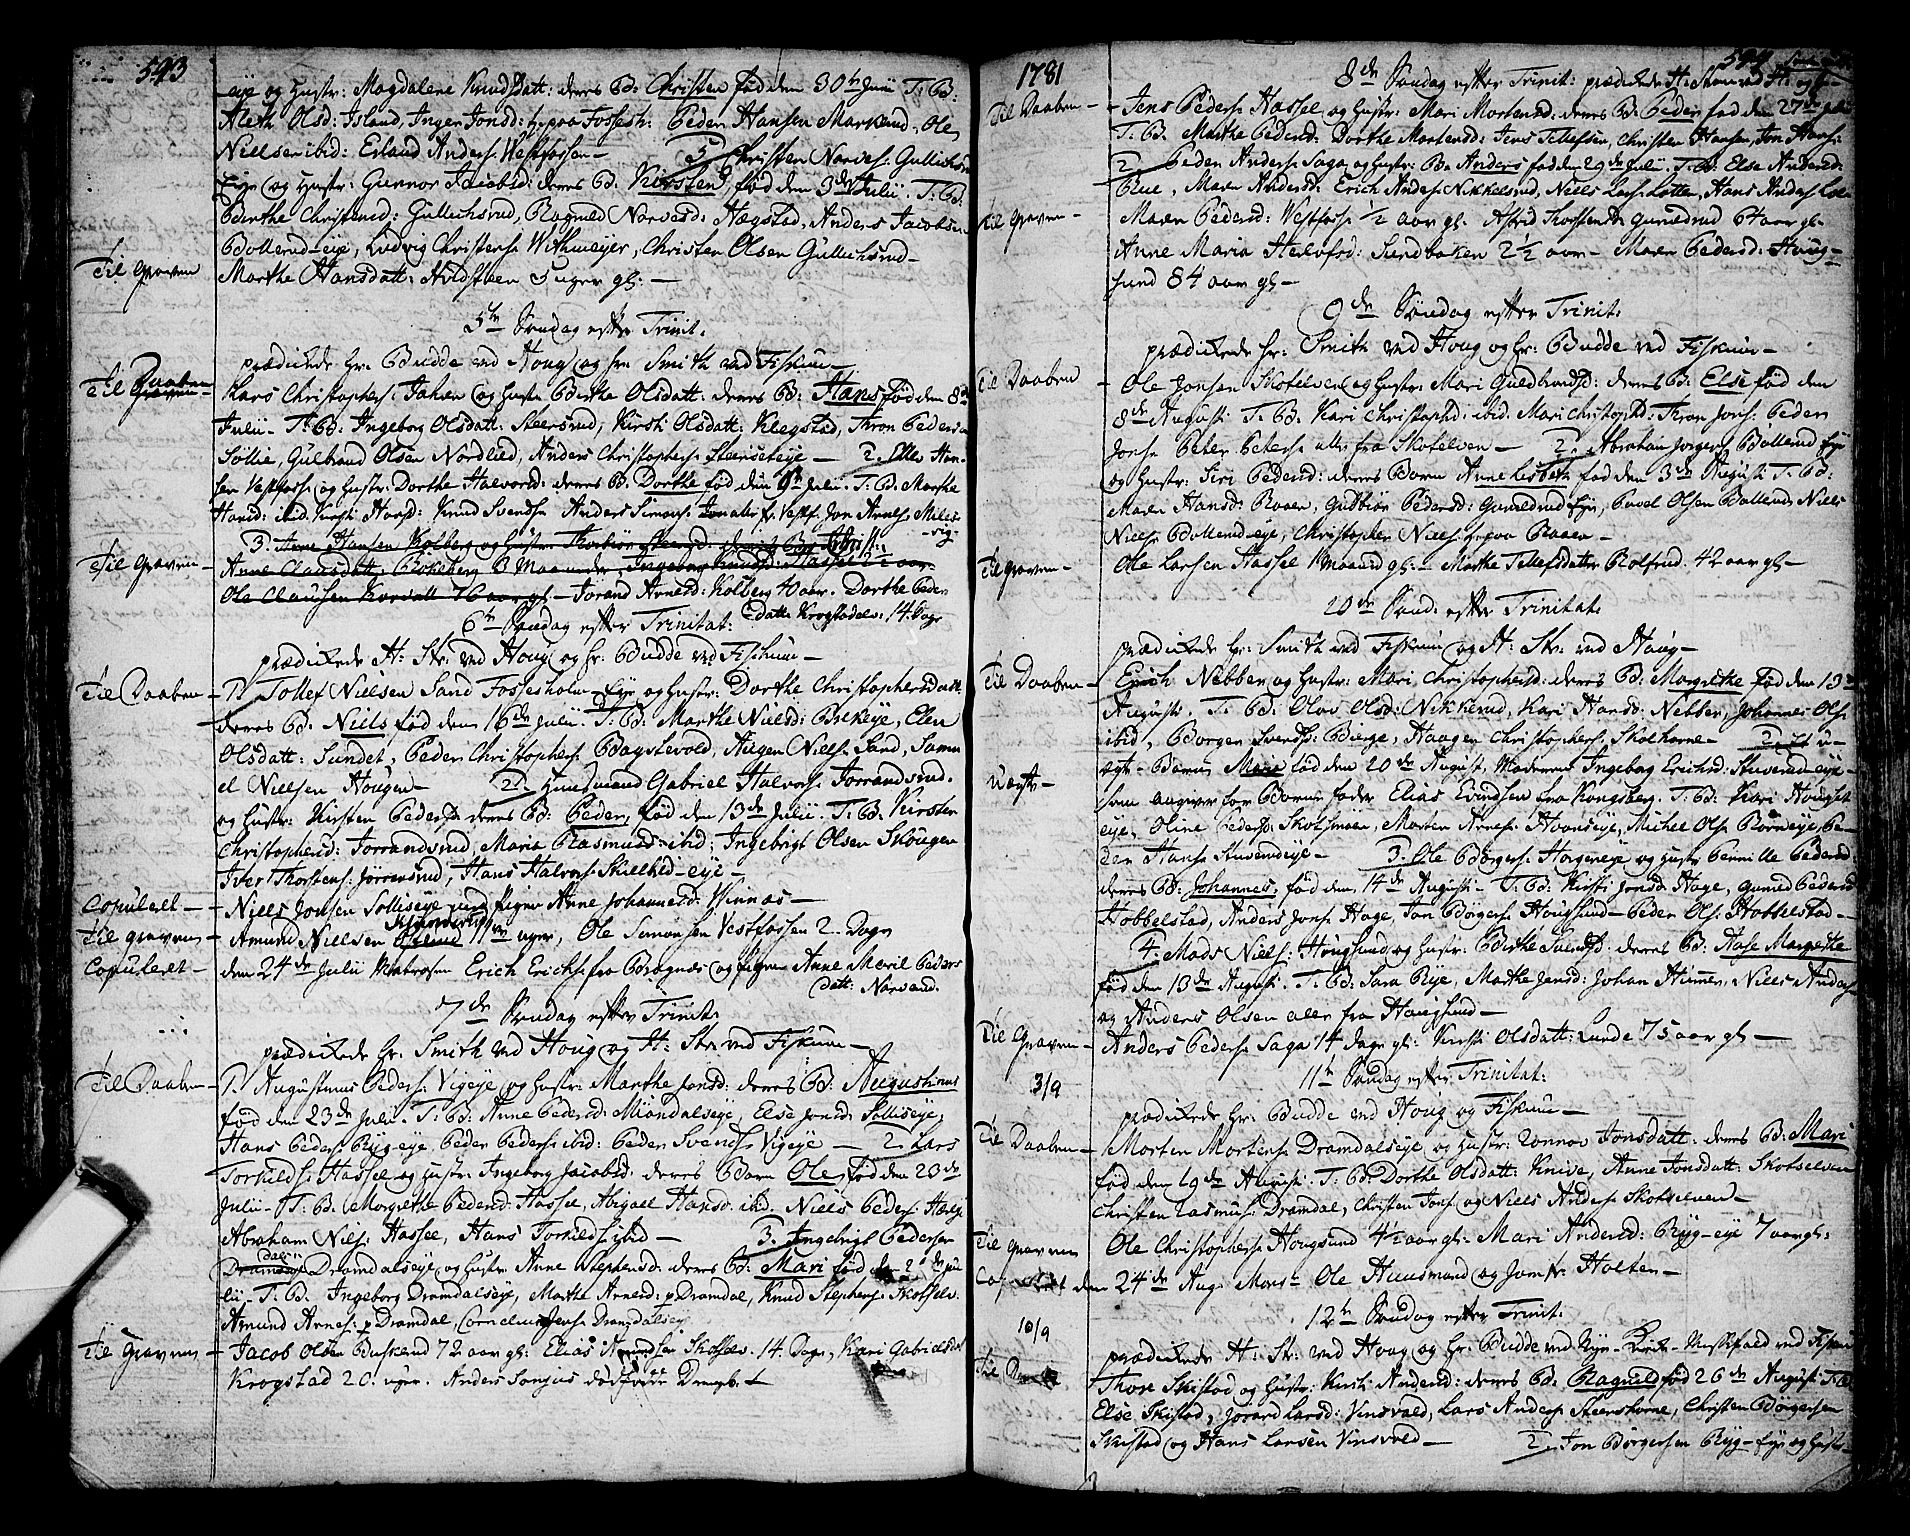 543
eje og hustr: Magdalene Knudsdatt: deres B: Christen fød den 30te Junii T: B:
Aleth Olsd: Island, Inger Jonsd: Fossesh: Peder Hansen Markerud, Ole
Nielsen ibid: Erland Anders: Vestfossen – 5 Christen Narves: Gullichsrud
Eje og hustr: Gunnor Jacobsd: deres B: Kirsten fød den 3de Julii. T: B:
Berthe Christensd: Gullichsrud, Ragnild Narvesd: Hægstad, Anders Jacobsen
Bollerud-eje, Ludvig Christens: Withmeyer, Christen Olsen Gullichsrud –
Til Graven Marthe Hansdatt: Hvidsteen 5 uger gl: –
5te Søndag efter Trinit:
prædikede Hr: Budde ved Houg og hr: Smith ved Fiskum –
Til Daaben – Lars Christophers: og hustr: Berthe Olsdatt: deres B: Hans fød den 8de
Julii – T: B: Ingeborg Olsdatt: Steensrud, Kirsti Olsdatt: Klegstad, Thron Peders:
Søllie, Gulbrand Olsen Nordlied, Anders Christophers: – 2. Elle Han-
sen Vestfoss: og hustr: Dorthe Halvorsd: deres B: Dorthe fød den 9de Julii. T: B: Marthe
Hansd: ibid: Kirsti Hansd: Knud Svends: Anders Simons: Vestf: Jon Arnes: Miles-
vig –
3. Arne Hansen Kolberg og hustr:
Til Graven – Anne Clausdatt: Bokeberg 3 Maaneder Ingeborg Knudsd: Hassel
Ole Clausen 76 aar gl – Jorand Arnesd: Kolberg 40 aar. Dorthe Peders
datt: Krogstadels: 14. Dage
6te Søndag efter Trinitat:
prædikede H: Str: ved Houg og hr: Budde ved Fiskum –
Til Daaben – 1. Tollef Nielsen Sand Fossesholm – Eje og hustr: Dorthe Christophersdatt
deres B: Niels fød den 16de Julii. T: B: Marthe Nielsd: Bekeje, Elen
Olsdatt: Sundet, Peder Christophers: Bagstevold, Augen Niels: Sand, Samu
el Nielsen Hougen – 2. Huusmand Gabriel Halvors: Jorrandsrud.
og hustr: Kirsten Pedersd: deres B: Peder, fød den 13de Julii. T: B: Kirsten
Christophersd: Jorrandsrud, Maria Rasmusd: ibid: Ingebrigt Olsen Skougen
Iver Thorstens: Jorrandsrud, Hans Halvors: Skuelhed-eje –
Copuleret – Niels Jonsen Sollieeje med Pigen Anne Johannesd: Vinnæs –
Til graven – Amund Nielsen 11 uger, Ole Simonsen Vestfossen 2. Dage
Copuleret – den 24de Julii Matrosen Erich Erichs: fra Bragnæs og Pigen Anne Maril Peders
datt: Narverud.
7de Søndag efter Trinit:
prædikede hr: Smith ved Houg og H: Str: ved Fiskum –
Til Daaben – 1. Augustinus Peders: Vigeje og hustr: Marthe Jonsd: deres B: Augustinus
fød den 23de Julii. T: B: Anne Pedersd: Miøndalseje, Else Jonsd: Sollieeje,
Hans Peders: Ryg-eje, Peder Peders: ibid: Peder Svends: Vigeje – 2. Lars
Torkilds: Hassel og hustr: Ingeborg Jacobsd: deres Barn Ole, fød den 23de
Julii – T: B: Margrethe Pedersd: Hassel, Abigael Hansd: ibid. Niels Peders:
Abraham Niels: Hassel, Hans Torkilds: ibid – 3. Ingebrigt Pedersen
Dramdalseje og hustr: Anne Stephensd: deres B: Mari fød den 2 de Ju
lii – T: B. Ingeborg Dramdalseje, Marthe Arnesd: p Dramdal, Knud Stephens: Skotselv.
Amund Arnes: p Dramdal, Cornelius Jens: Dramdalseje
Til Graven – Jacob Olsen Buskerud 72 aar gl: Elias Amundsen Skotselv. 14. Dage, Kari Gabrielsdatt
Krogstad 20. uger. Anders dødfødde Drengb. –
1781
544
8de Søndag efter Trinit: prædikede H: Strøm ved Houg
Til Daaben – Jens Peders: Hassel og hustr: Mari Mortensd: deres B: Peder fød den 27de
T: B. Marthe Pedersd: Dorthe Mortensd: Jens Tellefsen, Christen Hansen, Jon Hans:
2. Peder Anders: Saga og hustr: B: Anders fød den 29de Julii. T: B: Else Andersd:
Rue, Maren Andersd: Erich Anders: Nikkelsrud, Niels Lars: Lotte, Hans Anders:
Til Graven – Maren Pedersd: Vestfoss: 1/2 aar gl: Astrid Thorstensdt Gunildrud 64 aar gl –
Anne Maria Sundbakken 2 1/2 aar – Maren Pedersd: Houg-
sund 84 aar gl –
9de Søndag efter Trinit:
prædikede hr: Smith ved Houg og hr: Budde ved Fiskum –
Til Daaben – Ole Jonsen Skotselven og hustr: Mari Guldbrandsd: deres B: Else fød den
8de Augusti T: B: Kari Christophd: ibid. Mari Christophd: Thron Jons: Peder
Jons: Peter Peters: alle fra Skotselven – 2. Abraham Jorgens: Bollerud Eje
og hustr: Siri Pedersd: deres Barn Anne Lisbeth fød den 3de Augusti T: B:
Maren Hansd: Raaen, Gudbiør Pedersd: Gunildrud Eje, Povel Olsen Bollerud, Niels
Niels: Bollerud-eje, Christopher Niels: Raaen –
Til graven – Ole Larsen Hassel 1 Maaned gl: – Marthe Tellefsdatter Rolfrud. 42 aar gl –
10de Sønd: efter Trinitat:
prædikede hr: Smith ved Fiskum og H: Str: ved Houg –
Til Daaben – Erich Nebben og hustr: Mari Christophersd: deres B: Margrethe fød den 13de
Augusti. T: B: Olov Olsd: Nikkerud, Kari Hansd: Nebben, Johannes Ols:
ibid, Børgen Svends: Berge, Haagen Christophers: Skolhorne – 2. Et u-
Uægte – ægte Barn Marie fød den 20de August, Moderen Ingeborg Erichsd: Stuverud-eje –
som angiver for Barnefader Elias Evindsen fra Kongsberg. T: B: Kari Houg
eje, Oline Pedersd: Skotsmoen, Morten Arnes: Hoenseje, Michel Ols: Horneeje, Pe-
der Hans: Stuverudeje – 3. Ole Børgers: Horgeneje og hustr: Pernille Pedersd
deres B: Johannes, fød den 14de Augusti – T: B: Kirsti Jonsd: Hoge, Gunild Pedersd
Hobbelstad, Anders Jons: Hage, Jon Børgers: Hougsund – Peder Ols: Hobbelstad –
4. Mads Niels: Hougsund og hustr: Berthe Svendsd: deres B: Aase Margrethe
fød den 13de Augusti. T: B: Sara Rye, Marthe Jensd: Johan Hummer, Niels Anders:
og Anders Olsen alle fra Hougsund –
Til Graven – Anders Peders: Saga 14 dage gl: Kirsti Olsdatt: Lunde 75 aar gl –
11te Søndag efter Trinitat:
3/9 prædikede hr: Budde ved Houg og Fiskum –
Til Daaben – Morten Mortens: Dramdalseje og hustr: Ronnov Jonsdatt: deres B: Mari
fød den 19de Augusti. T: B: Dorthe Olsdatt: Knive, Anne Jonsdatt: Skotselven
Christen Rasmus: Dramdal, Christen Jons: og Niels Anders: Skotselven –
Til Graven Ole Christophers: Hougsund 4 1/2 aar gl: Mari Andersd: Ryg-eje 7 aar gl:
Copuleret den 24de Aug: Mons: Ole Huusmand og Jomfr: Holter –
12te Søndag efter Trinit:
10/9 prædikede H: Str: ved Houg og Hr: Budde ved Nye-Kirke – ved Fiskum
Til Daaben Thore Skistad og hustr: Kirsti Andersd: deres B: Ragnild fød 26de Augusti T: B:
Else Skistad, Jorand Larsd: Vinsvold, Lars Anders: Steenshorne, Christen Børgersen
Skistad og Hans Larsen Vinsvold – 2. Jon Børgersen Ryg-Eje og hustr: